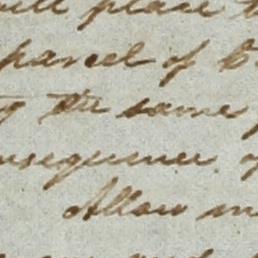 will place
parcel of
the same
consequence of
Allow